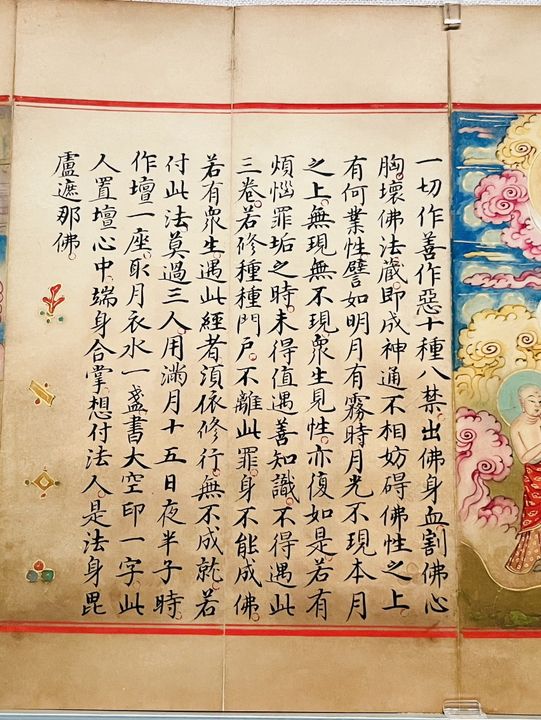 一切作善作惡十種八禁出佛身血割佛心
胸壞佛法藏即成神通不相妨碍佛性之上
有何業性譬如明月有霧時月光不現本月
之上無現無不現衆生見性亦復如是若有
煩惱罪垢之時未得值遇善知識不得遇此
三卷若修種種門戶不離此罪身不能成佛
若有衆生遇此經者須依修行無不成就若
付此法莫過三人用滿月十五日夜半子時
作壇一座取月衣水一盞書大空印一字此
人置壇心中端身合掌想付法人是法身毘
盧遮那佛